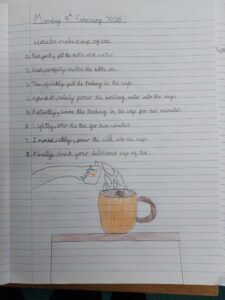 Monday 9th February 2026
How to make a cup of tea
1. Frequently, fill the kettle with water.
2. Next, switch the kettle on.
3. Then quickly, put the teabag in the cup.
4. After that, safely pour the boiling water into the cup.
5. Patiently, leave the teabag in the cup for two minutes.
6. Lightly, stir the tea for two minutes.
7. Immediately, pour the milk into the cup.
8. Finally, drink your delicious cup of tea.